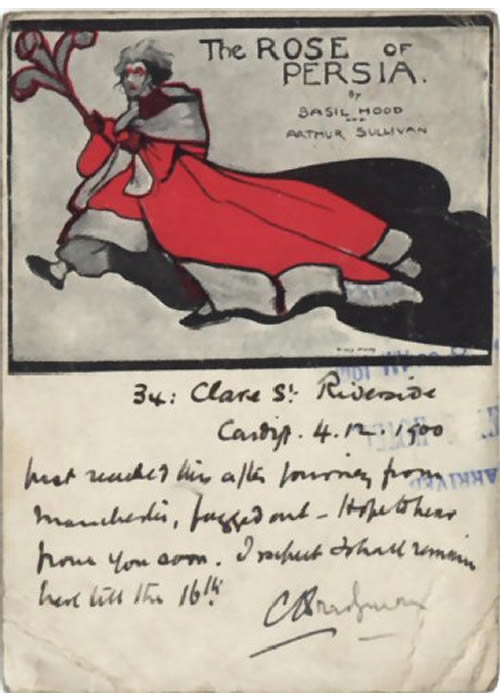 The ROSE OF
PERSIA.
BY
BASIL HOOD
AND
ARTHUR SULLIVAN
34: Clare St. Riverside
Cardiff. 4.12.1900
Just reached this after journey from
Manchester, fagged out – Hope to hear
from you soon. I expect I shall remain
here till the 16th
ARRIVED